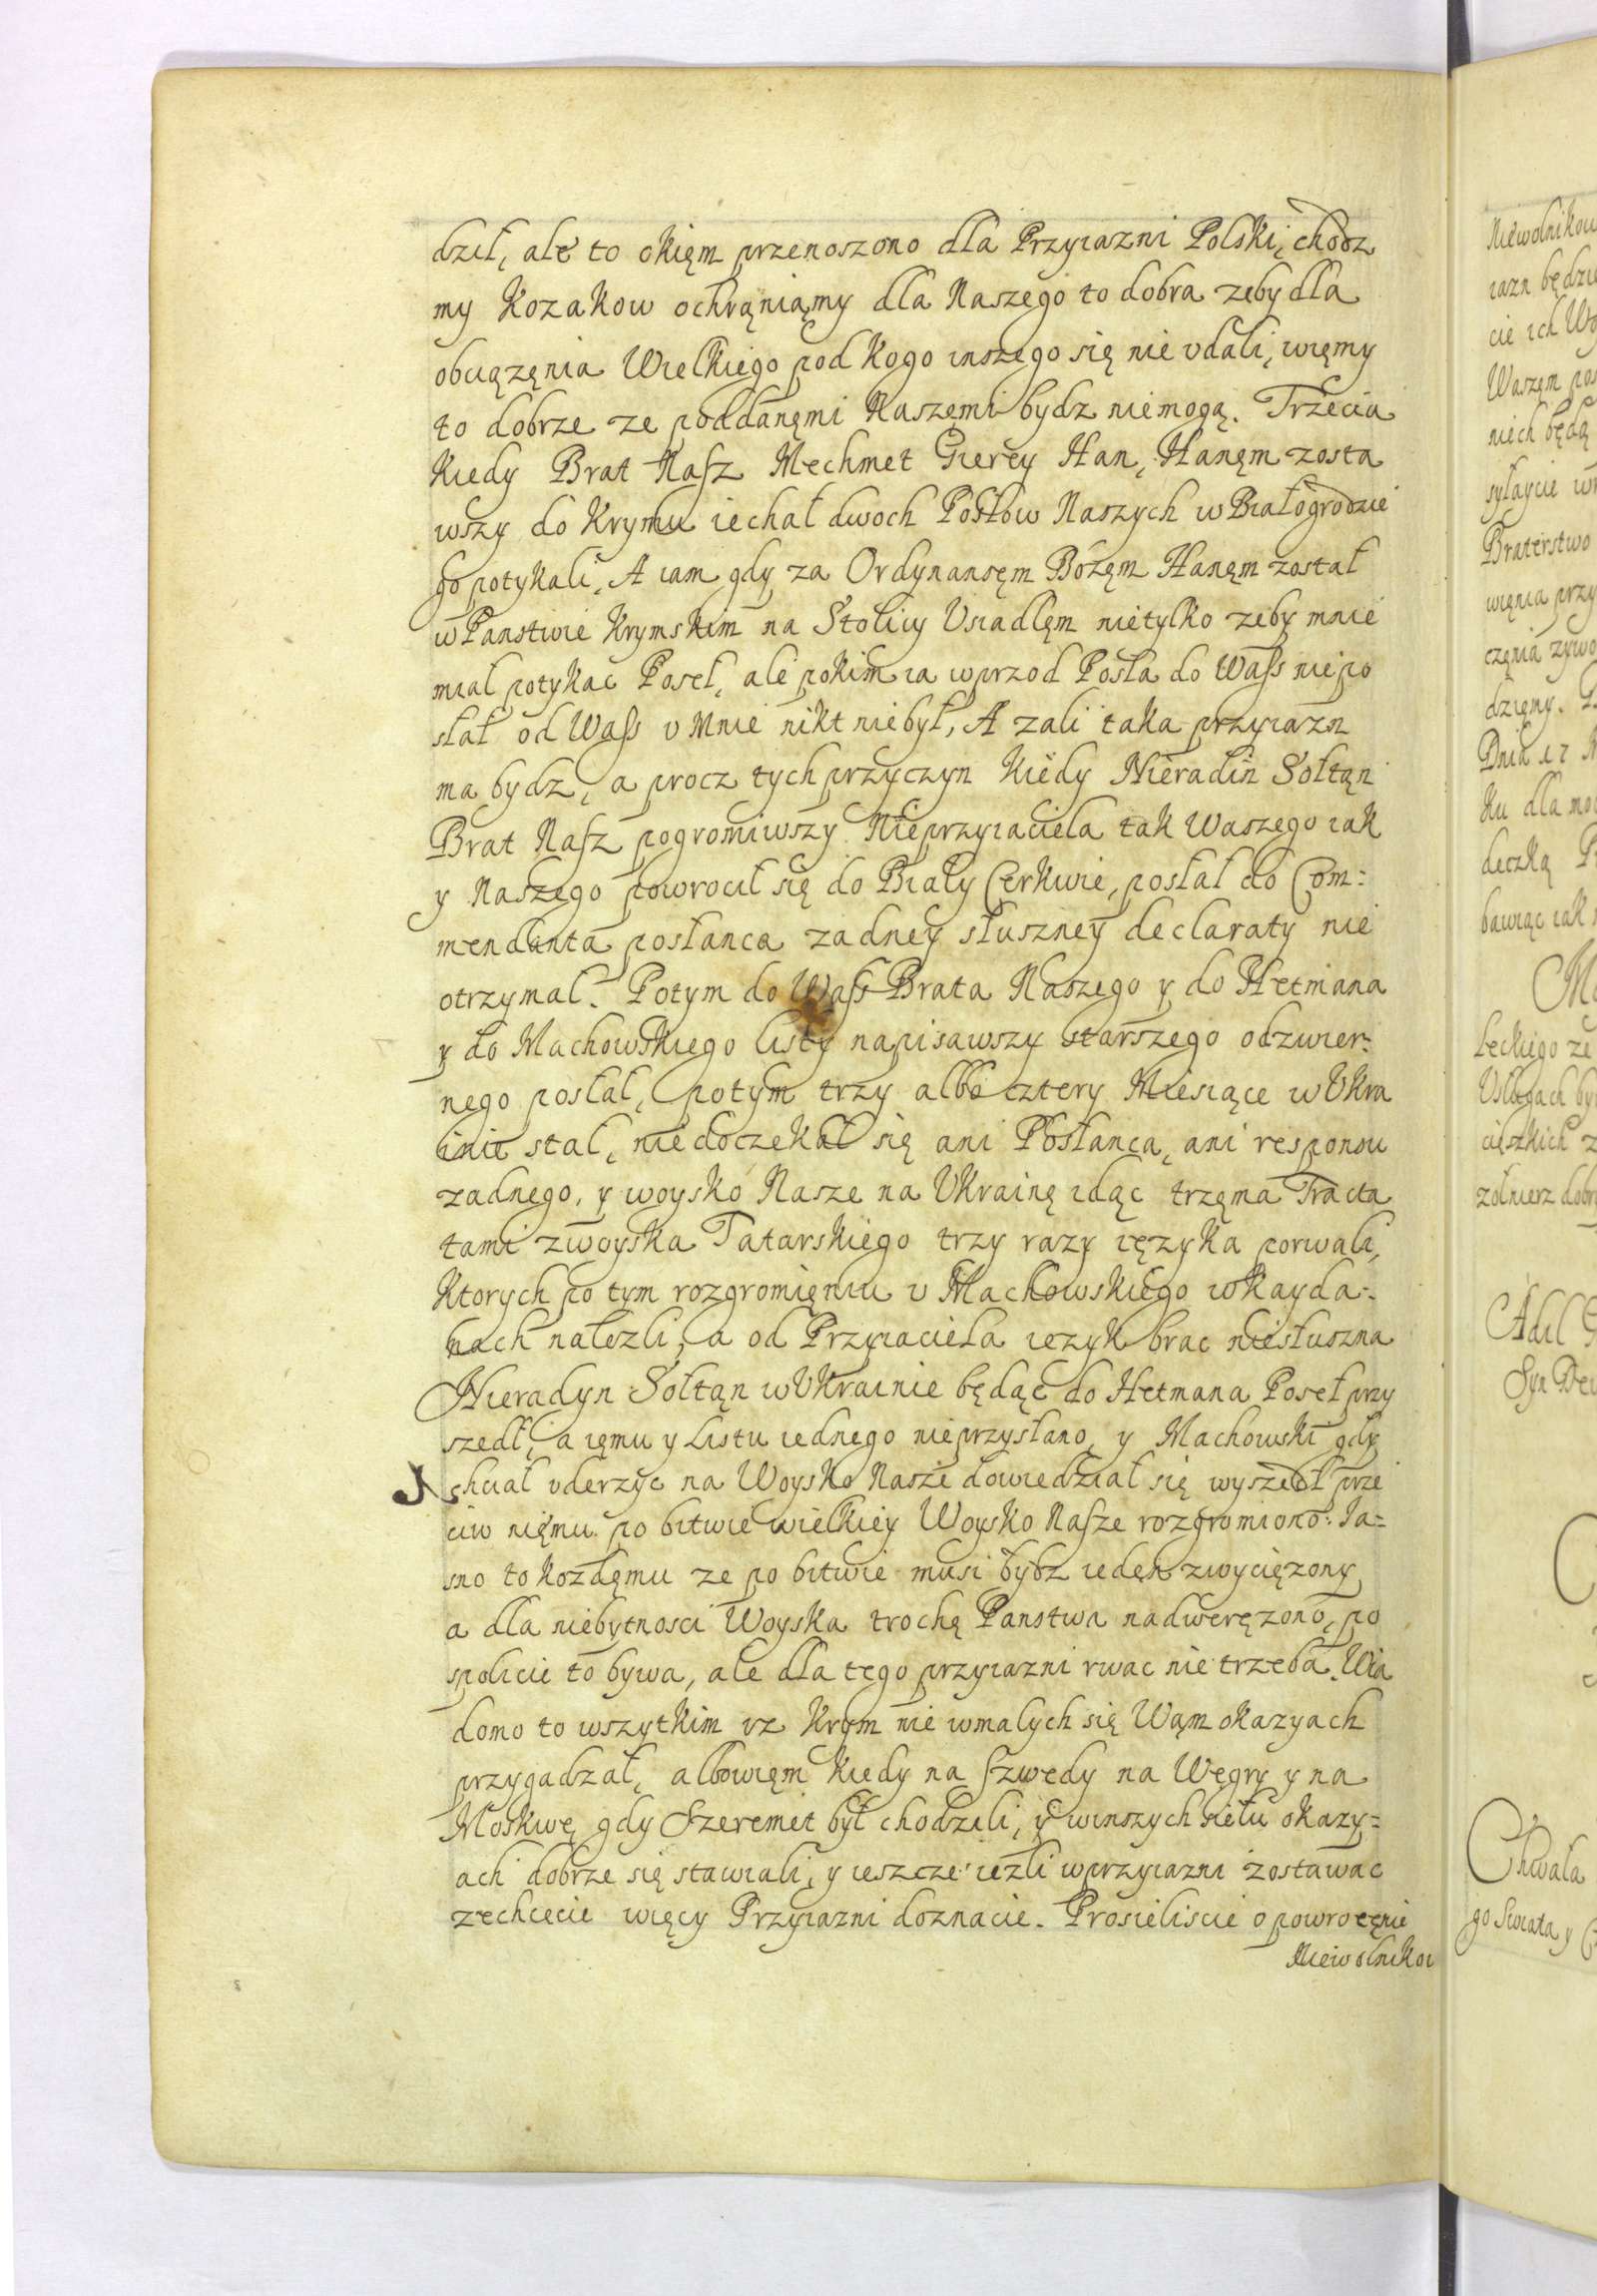 dził, ale to okięm przenoszono dla Przyiazni Polski, chodz
my Kozakow ochrąniąmy dla Naszego to dobra zeby dla
obciązęnia Wielkiego pod Kogo inszego się nie vdali, więmy
to dobrze ze poddanęmi Naszęmi bydz niemogą. Trzecia
Kiedy Brat Nasz Mechmet Gierey Han, Hanęm zosta
wszy do Krymu iechał dwoch Posłow Naszych w Białogrodzie
go potykali, A iam gdy za Ordynansęm Bozęm Hanęm został
w Panstwie Krymskim na Stolicy Vsiadlęm nietylko zeby mnie
miał potykac Poseł, ale pokim ia wprzod Posła do Wass niepo
słał od Wass v Mnie nikt niebył, A zali taka przyiazn
ma bydz, a procz tych przyczyn Kiedy Nieradin Sołtąn
Brat Nasz pogromiwszy Nieprzyiaciela tak Waszego iak
y Naszego powrocił się do Biały Cerkwie, posłał do Com:
mendanta posłanca zadney słuszney declaraty nie
otrzymał. Potym do Wass Brata Naszego y do Hetmana
y do Machowskiego listy napisawszy starszego odzwier:
nego posłał, potym trzy albo cztery Miesiące w Vkra
inie stał, niedoczekał się ani Posłanca, ani responsu
zadnego, y woysko Nasze na Vkrainę idąc trzęma Tracta
tami z woyska Tatarskiego trzy razy ięzyka porwali,
Ktorych po tym rozgromięniu v Machowskiego w Kayda:
nach nalezli, a od Przyiaciela iezyk brac niesłuszna
Nieradyn Sołtąn w Vkrainie będąc do Hetmana Poseł przy
szedł, a ięmu y Listu iednego nieprzysłano, y Machowski gdy
chciał vderzyc na Woysko Nasze dowiedział się wyszedł prze
ciw nięmu po bitwie wielkiey Woysko Nasze rozgromiono. Ia=
sno to kozdęmu ze po bitwie musi bydz iedęn zwyciezony
a dla niebytnosci Woyska trochę Panstwa nadweręzono, po
spolicie to bywa, ale dla tego przyiazni rwac nie trzeba. Wia
domo to wszytkim yz Krym nie wmalych się Wąm okazyach
przygadzał, albowięm kiedy na Szwedy na Węgry y na
Moskwę gdy Szeremet był chodzili, y winszych siełu okazy=
ach dobrze się stawiali, y ieszcze iezli wprzyiazni zostawac
zechcecie więcy Przyiazni doznacie. Prosieliscie o powrocęnie
Niewolnikow